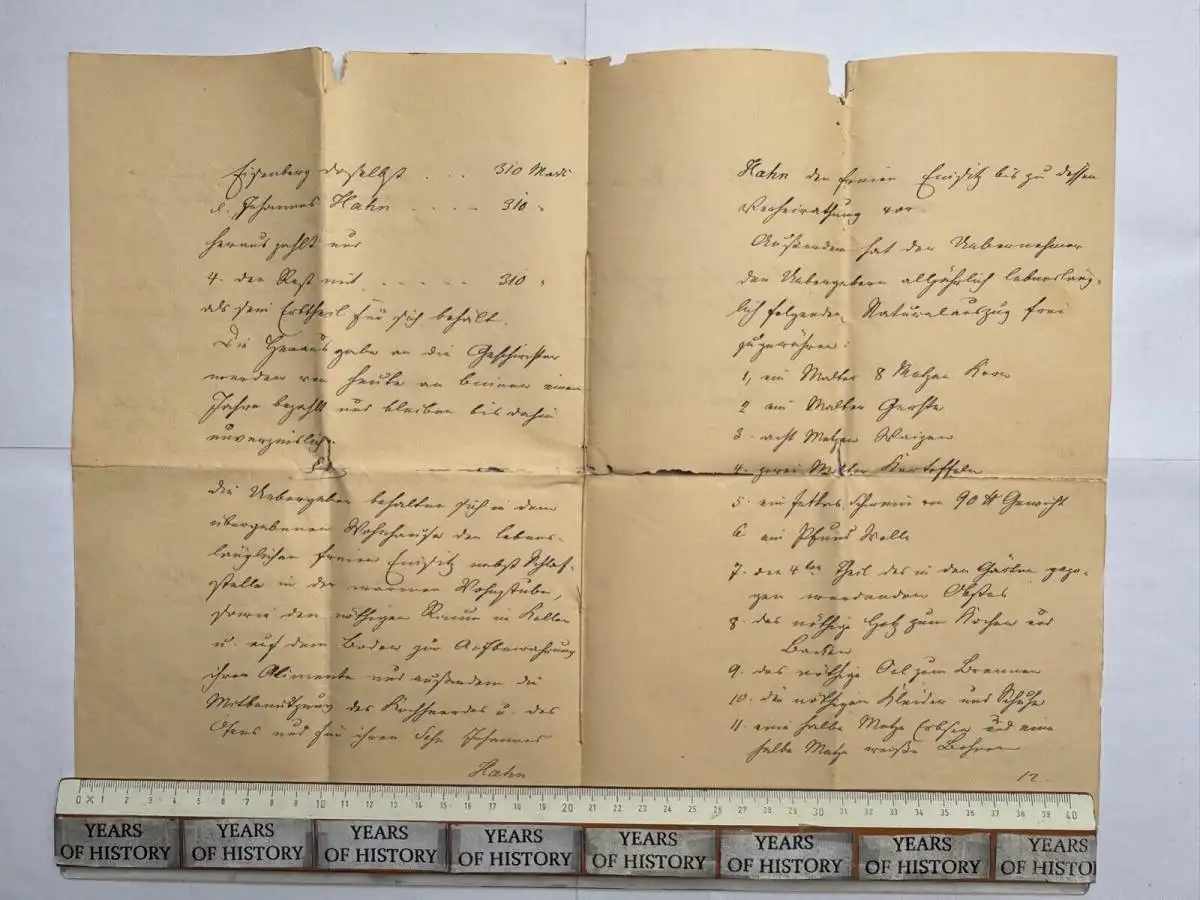 Eisenberg daselbst . . . 310 Mark
d. Johannes Hahn . . . . 310 "
herauszahlt und
4. den Rest mit . . . . . 310 "
als sein Erbtheil für sich behält.
Die Herausgabe an die Geschwister
werden von heute an binnen einem
Jahre bezahlt und bleiben bis dahin
unverzinslich.
Die Uebergeber behalten sich in dem
übergebenen Wohnhause den lebens-
länglichen freien Einsitz nebst Schlaf-
stelle in der warmen Wohnstube,
sowie den nöthigen Raum in Keller
u. auf dem Boden zur Aufbewahrung
ihrer Alimente und außerdem die
Mitbenutzung des Kochheerdes u. des
Ofens und für ihren Sohn Johannes
Hahn
Hahn den freien Einsitz bis zu dessen
Verheirathung vor.
Außerdem hat der Uebernehmer
den Uebergebern alljährlich lebensläng-
lich folgenden Naturalauszug frei
zu gewähren:
1, ein Malter 8 Metzen Korn
2 ein Malter Gerste
3. acht Metzen Waizen
4. zwei Malter Kartoffeln
5. ein fettes Schwein von 90 ℔ Gewicht
6. ein Pfund Wolle
7. den 4ten Theil des in den Gärten gezo-
gen werdenden Obstes
8. das nöthige Holz zum Kochen und
Backen
9. das nöthige Oel zum Brennen
10. die nöthigen Kleider und Schuhe
11. eine halbe Metze Erbsen und eine
halbe Metze weiße Bohnen
12.
0 1 2 3 4 5 6 7 8 9 10 11 12 13 14 15 16 17 18 19 20 21 22 23 24 25 26 27 28 29 30 31 32 33 34 35 36 37 38 39 40
YEARS OF HISTORY YEARS OF HISTORY YEARS OF HISTORY YEARS OF HISTORY YEARS OF HISTORY YEARS OF HISTORY YEARS OF HISTORY YEARS OF HISTO